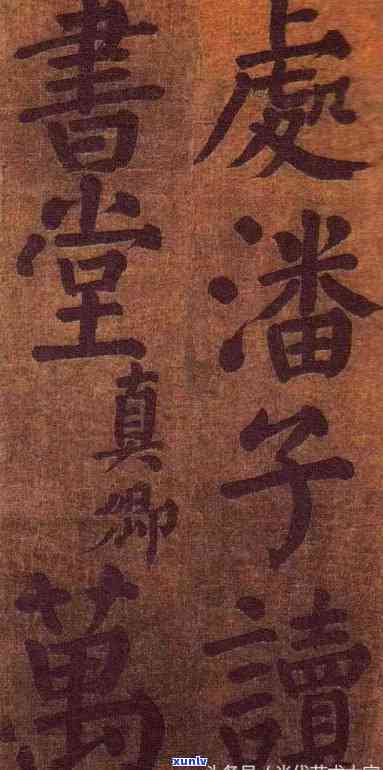 處潘子讀
書堂真卿萬
xunlv
头条号/当代艺术大家